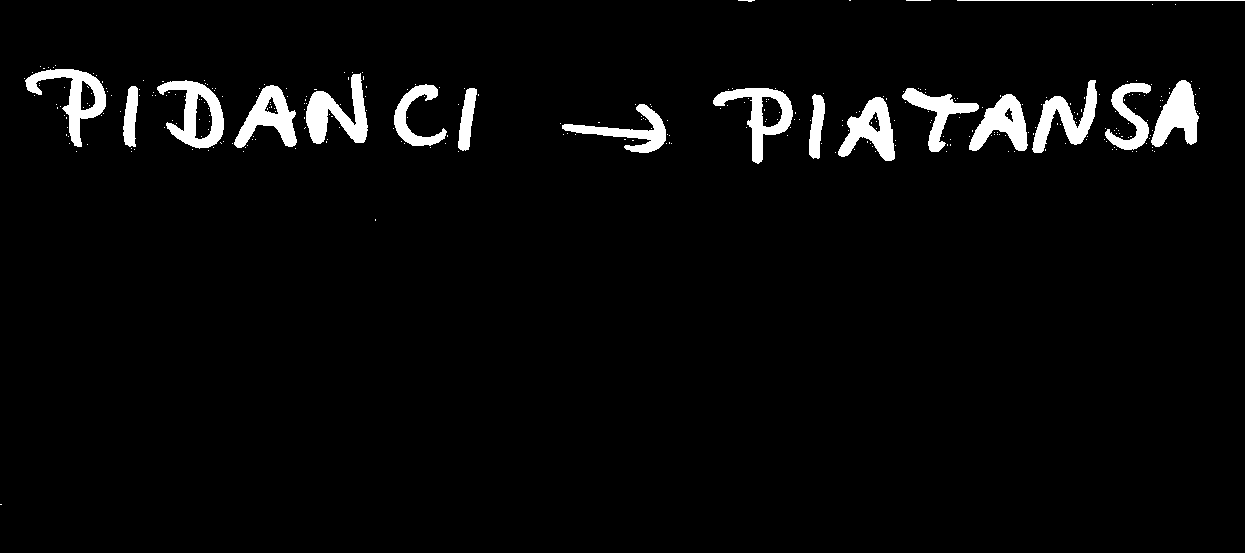 PIDANCI → PIATANSA